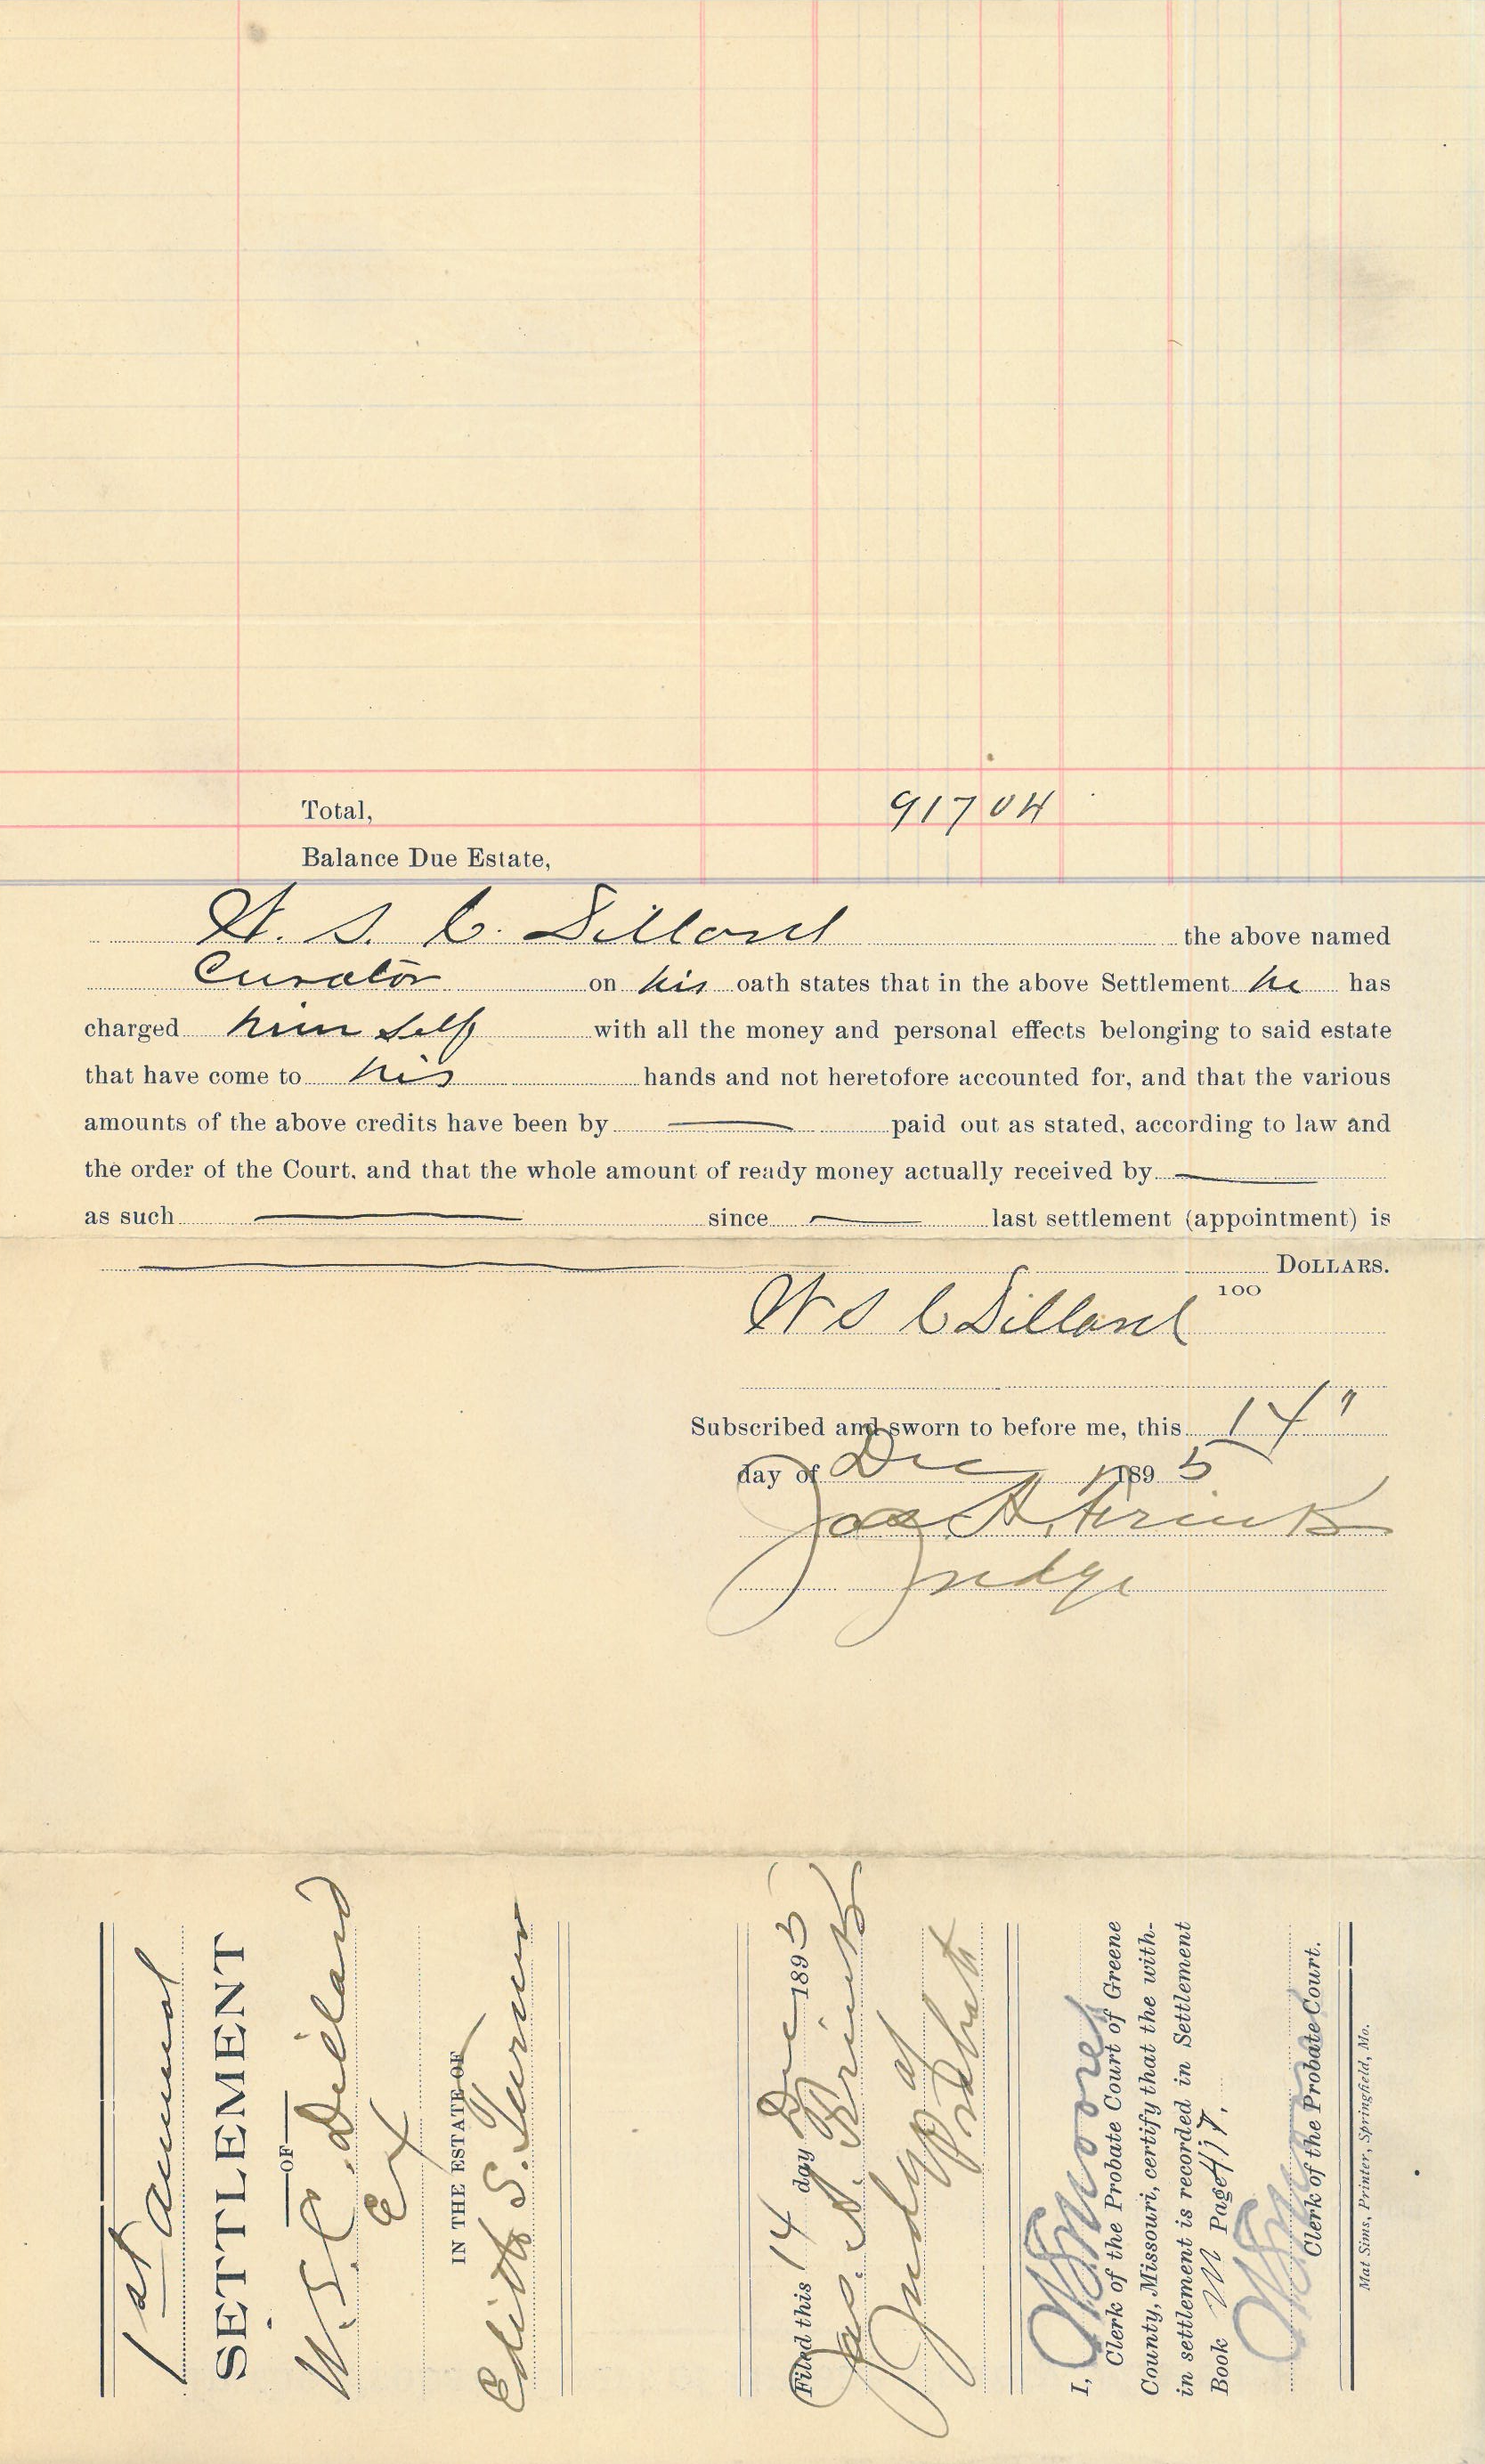 Total, 917 04
Balance Due Estate,
W. S. C. Dillard the above named
Curator on his oath states that in the above Settlement he has
charged him self with all the money and personal effects belonging to said estate
that have come to his hands and not heretofore accounted for, and that the various
amounts of the above credits have been by — paid out as stated, according to law and
the order of the Court, and that the whole amount of ready money actually received by —
as such — since — last settlement (appointment) is
— DOLLARS.
100
W S C Dillard
Subscribed and sworn to before me, this 14"
day of Dec 1895
Jas. A. Frink
Judge
1st annual
SETTLEMENT
—OF—
W. S. C. Dillard
Ex
IN THE ESTATE OF
Edith S. Turner
Filed this 14 day Dec 1895
Jas. A. Frink
Judge of
Probate
I,
Clerk of the Probate Court of Greene
County, Missouri, certify that the with-
in settlement is recorded in Settlement
Book M Page
Clerk of the Probate Court.
Mat Sims, Printer, Springfield, Mo.